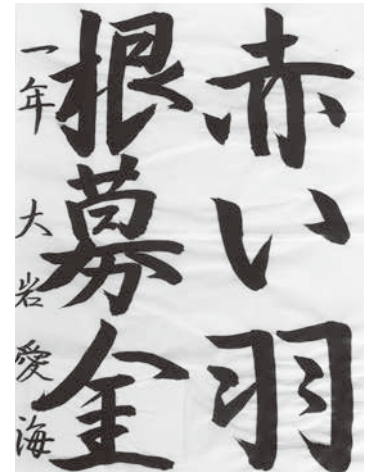 赤い羽
根募金
一年 大岩愛海